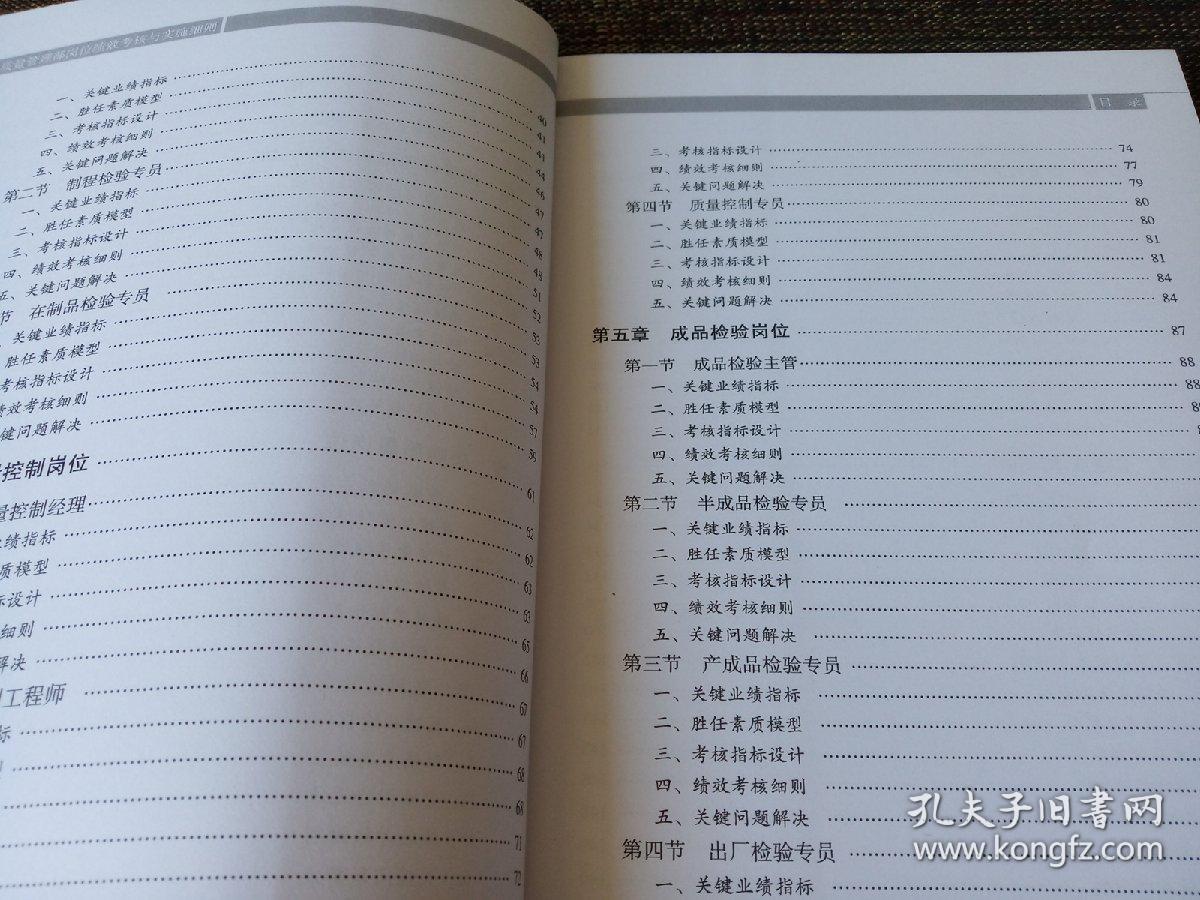 质量管理部岗位绩效考核与实施细则
一、关键业绩指标
二、胜任素质模型 40
三、考核指标设计 41
四、绩效考核细则 41
五、关键问题解决 44
第二节 制程检验专员 46
一、关键业绩指标 47
二、胜任素质模型 47
三、考核指标设计 48
四、绩效考核细则 49
五、关键问题解决 51
节 在制品检验专员 52
、关键业绩指标 53
胜任素质模型 53
考核指标设计 54
绩效考核细则 54
键问题解决 57
控制岗位 59
61
量控制经理 62
业绩指标 62
质模型 63
标设计 63
细则 65
解决 66
工程师 67
标 67
68
68
71
72
目 录
三、考核指标设计 74
四、绩效考核细则 77
五、关键问题解决 79
第四节 质量控制专员 80
一、关键业绩指标 80
二、胜任素质模型 81
三、考核指标设计 81
四、绩效考核细则 84
五、关键问题解决 84
第五章 成品检验岗位 87
第一节 成品检验主管 88
一、关键业绩指标 88
二、胜任素质模型
三、考核指标设计
四、绩效考核细则
五、关键问题解决
第二节 半成品检验专员
一、关键业绩指标
二、胜任素质模型
三、考核指标设计
四、绩效考核细则
五、关键问题解决
第三节 产成品检验专员
一、关键业绩指标
二、胜任素质模型
三、考核指标设计
四、绩效考核细则
五、关键问题解决
第四节 出厂检验专员
一、关键业绩指标
孔夫子旧书网
www.kongfz.com